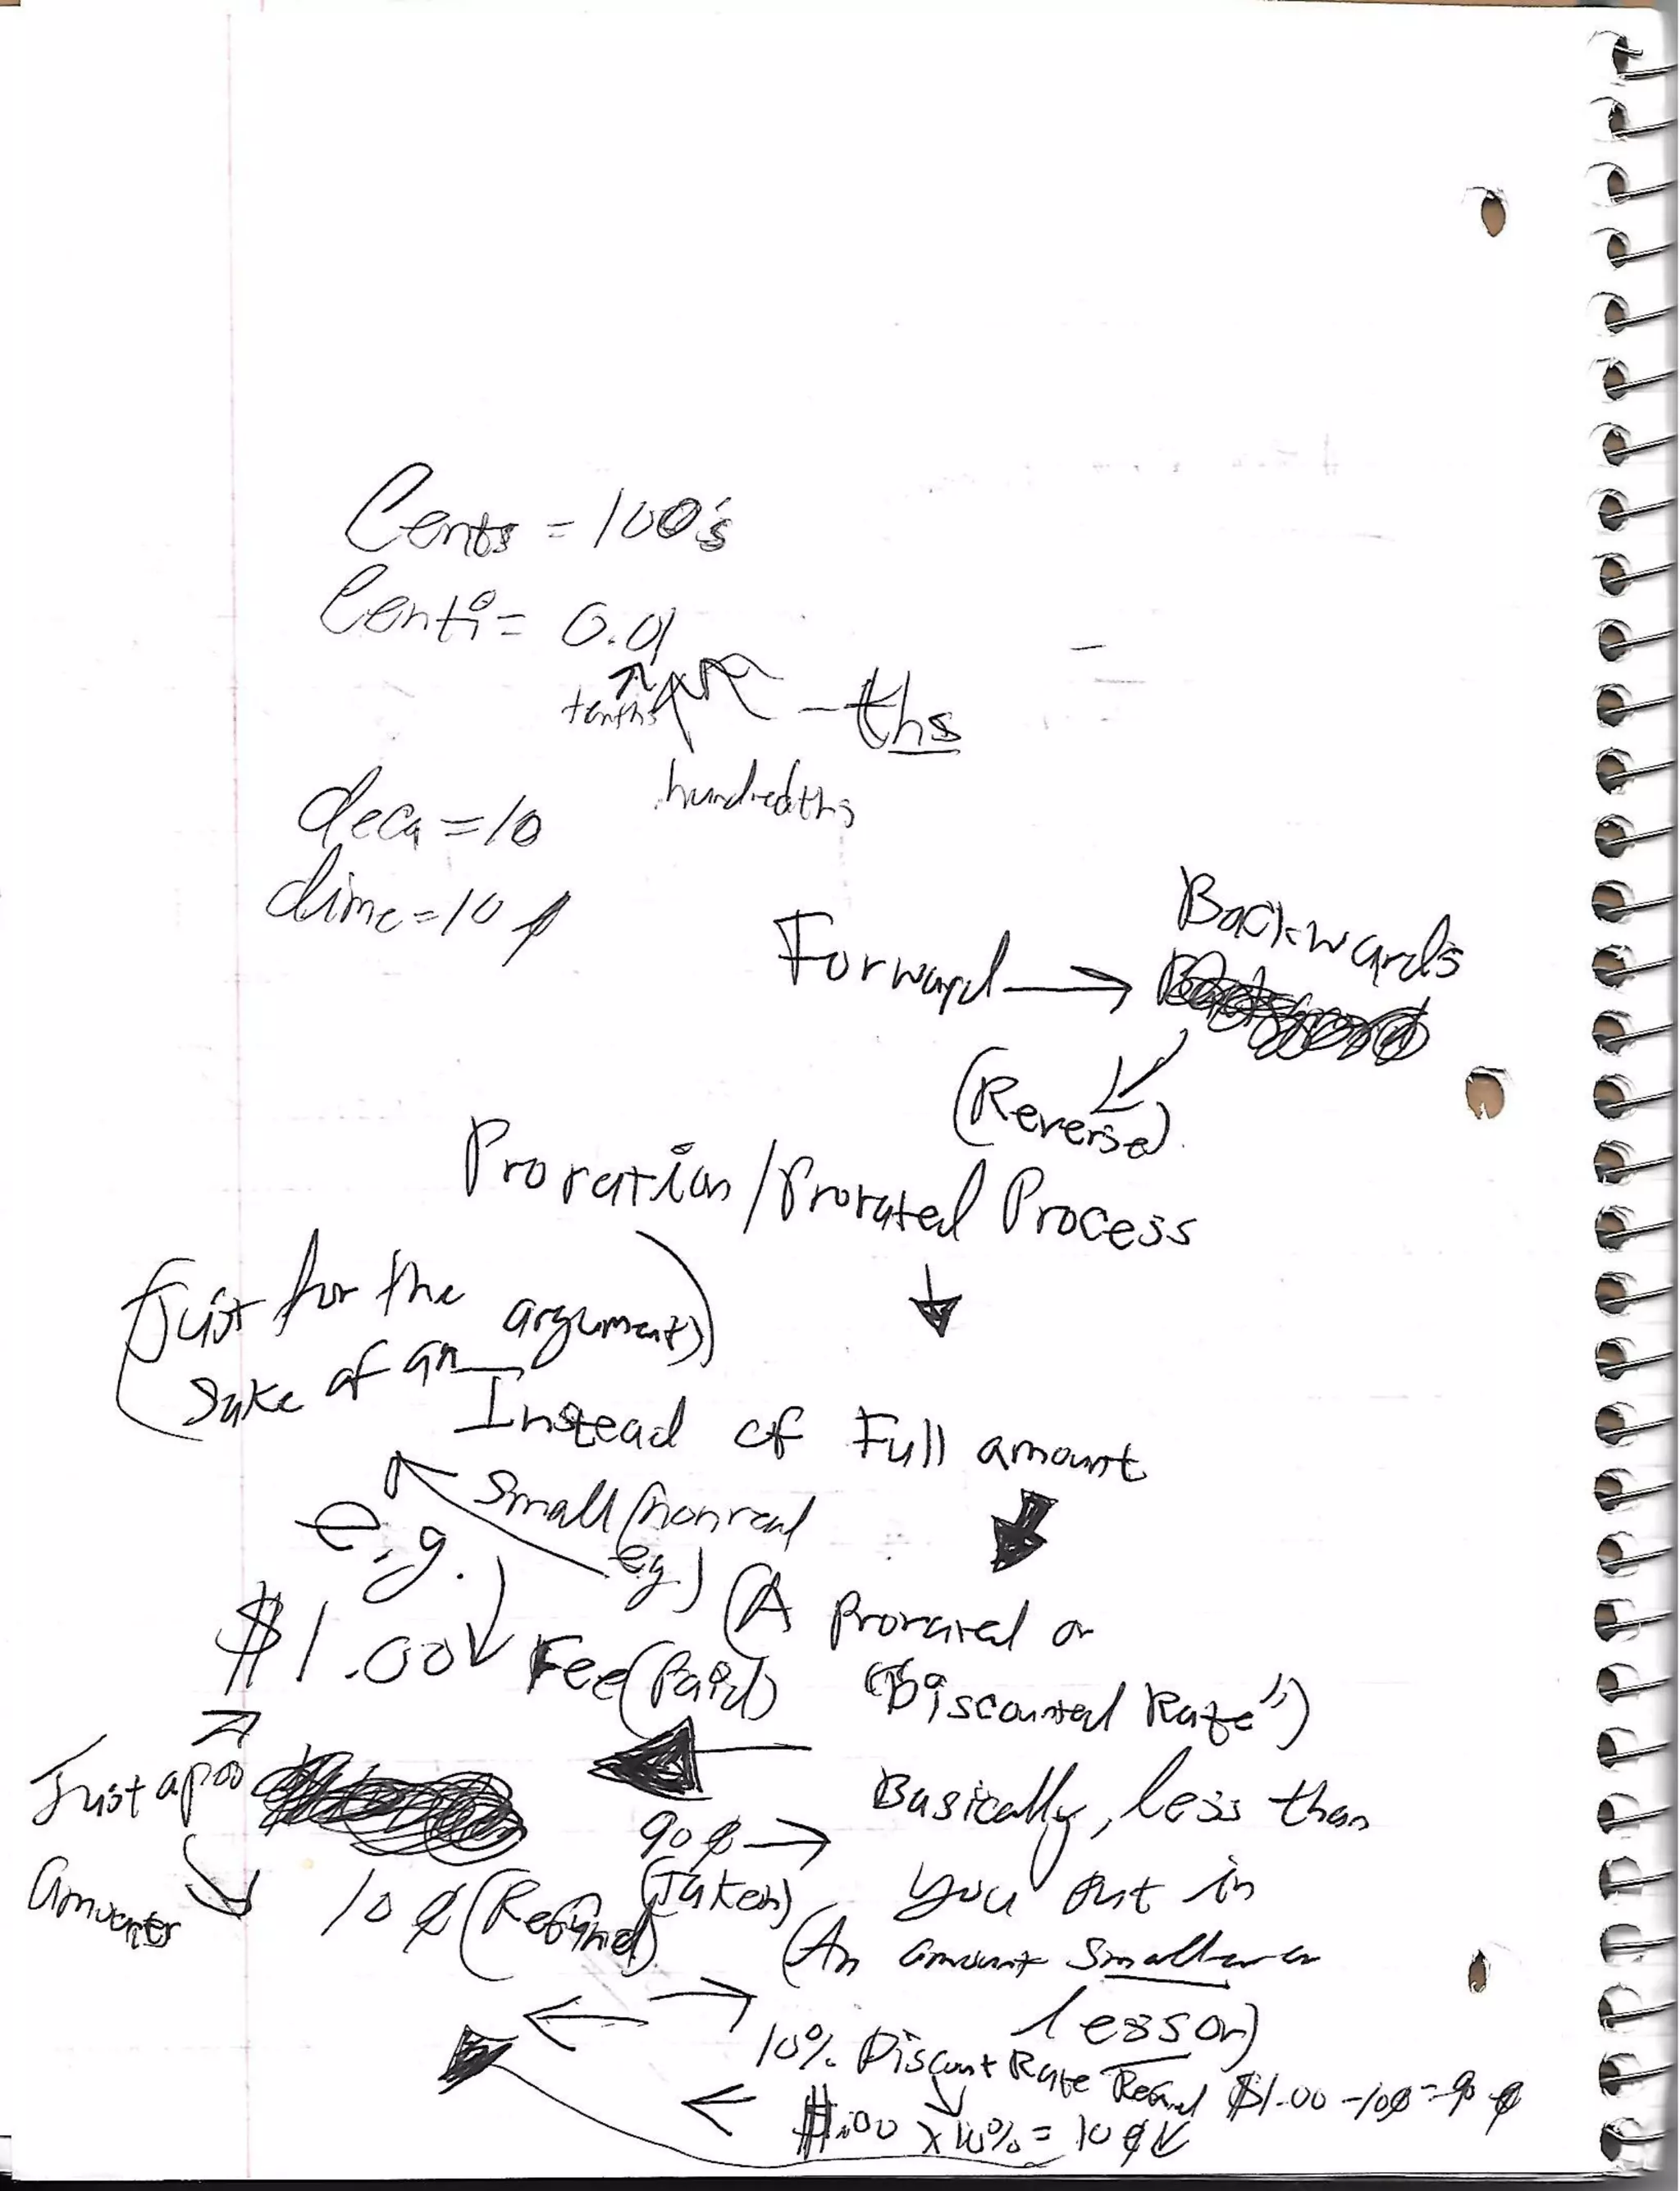 Cents = 100's
Centi = 0.01
tenths
- ths
hundredths
deca = 10
dime = 10 ¢
Backwards
Forward
(Reverse)
Proration / Prorated Process
(Just for the
sake of an argument)
Instead of Full amount
e.g.
Small (nonreal
e.g.)
(A prorated or
"Discounted Rate")
$1.00 Fee (Paid)
Just
Basically, less than
you put in
90 ¢
(Taken)
10 ¢ (Refund)
(An amount smaller or
lesser)
10% Discount Rate Refund $1.00 - 10¢ = 90 ¢
x 10% = 10 ¢